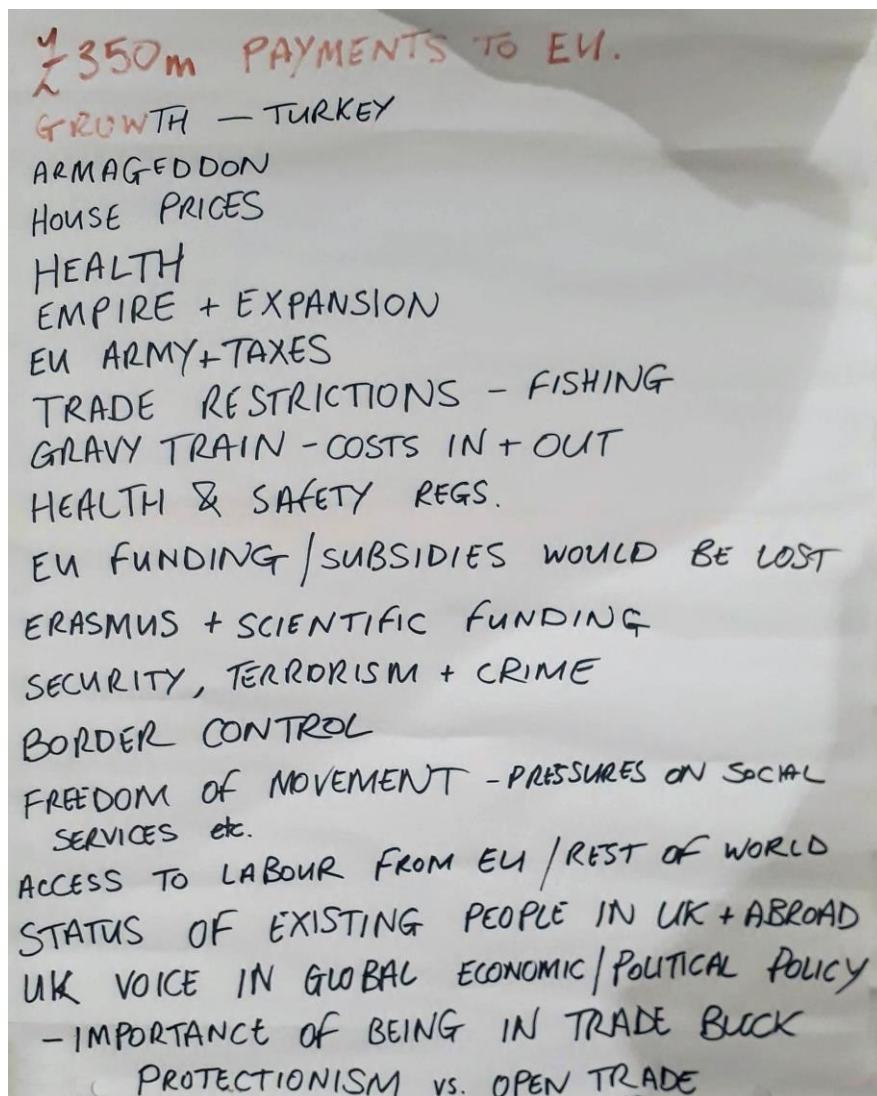 £350m PAYMENTS TO EU.
GROWTH - TURKEY
ARMAGEDDON
HOUSE PRICES
HEALTH
EMPIRE + EXPANSION
EU ARMY + TAXES
TRADE RESTRICTIONS - FISHING
GRAVY TRAIN - COSTS IN + OUT
HEALTH & SAFETY REGS.
EU FUNDING / SUBSIDIES WOULD BE LOST
ERASMUS + SCIENTIFIC FUNDING
SECURITY, TERRORISM + CRIME
BORDER CONTROL
FREEDOM OF MOVEMENT - PRESSURES ON SOCIAL
SERVICES etc.
ACCESS TO LABOUR FROM EU / REST OF WORLD
STATUS OF EXISTING PEOPLE IN UK + ABROAD
UK VOICE IN GLOBAL ECONOMIC / POLITICAL POLICY
- IMPORTANCE OF BEING IN TRADE BLOCK
PROTECTIONISM vs. OPEN TRADE